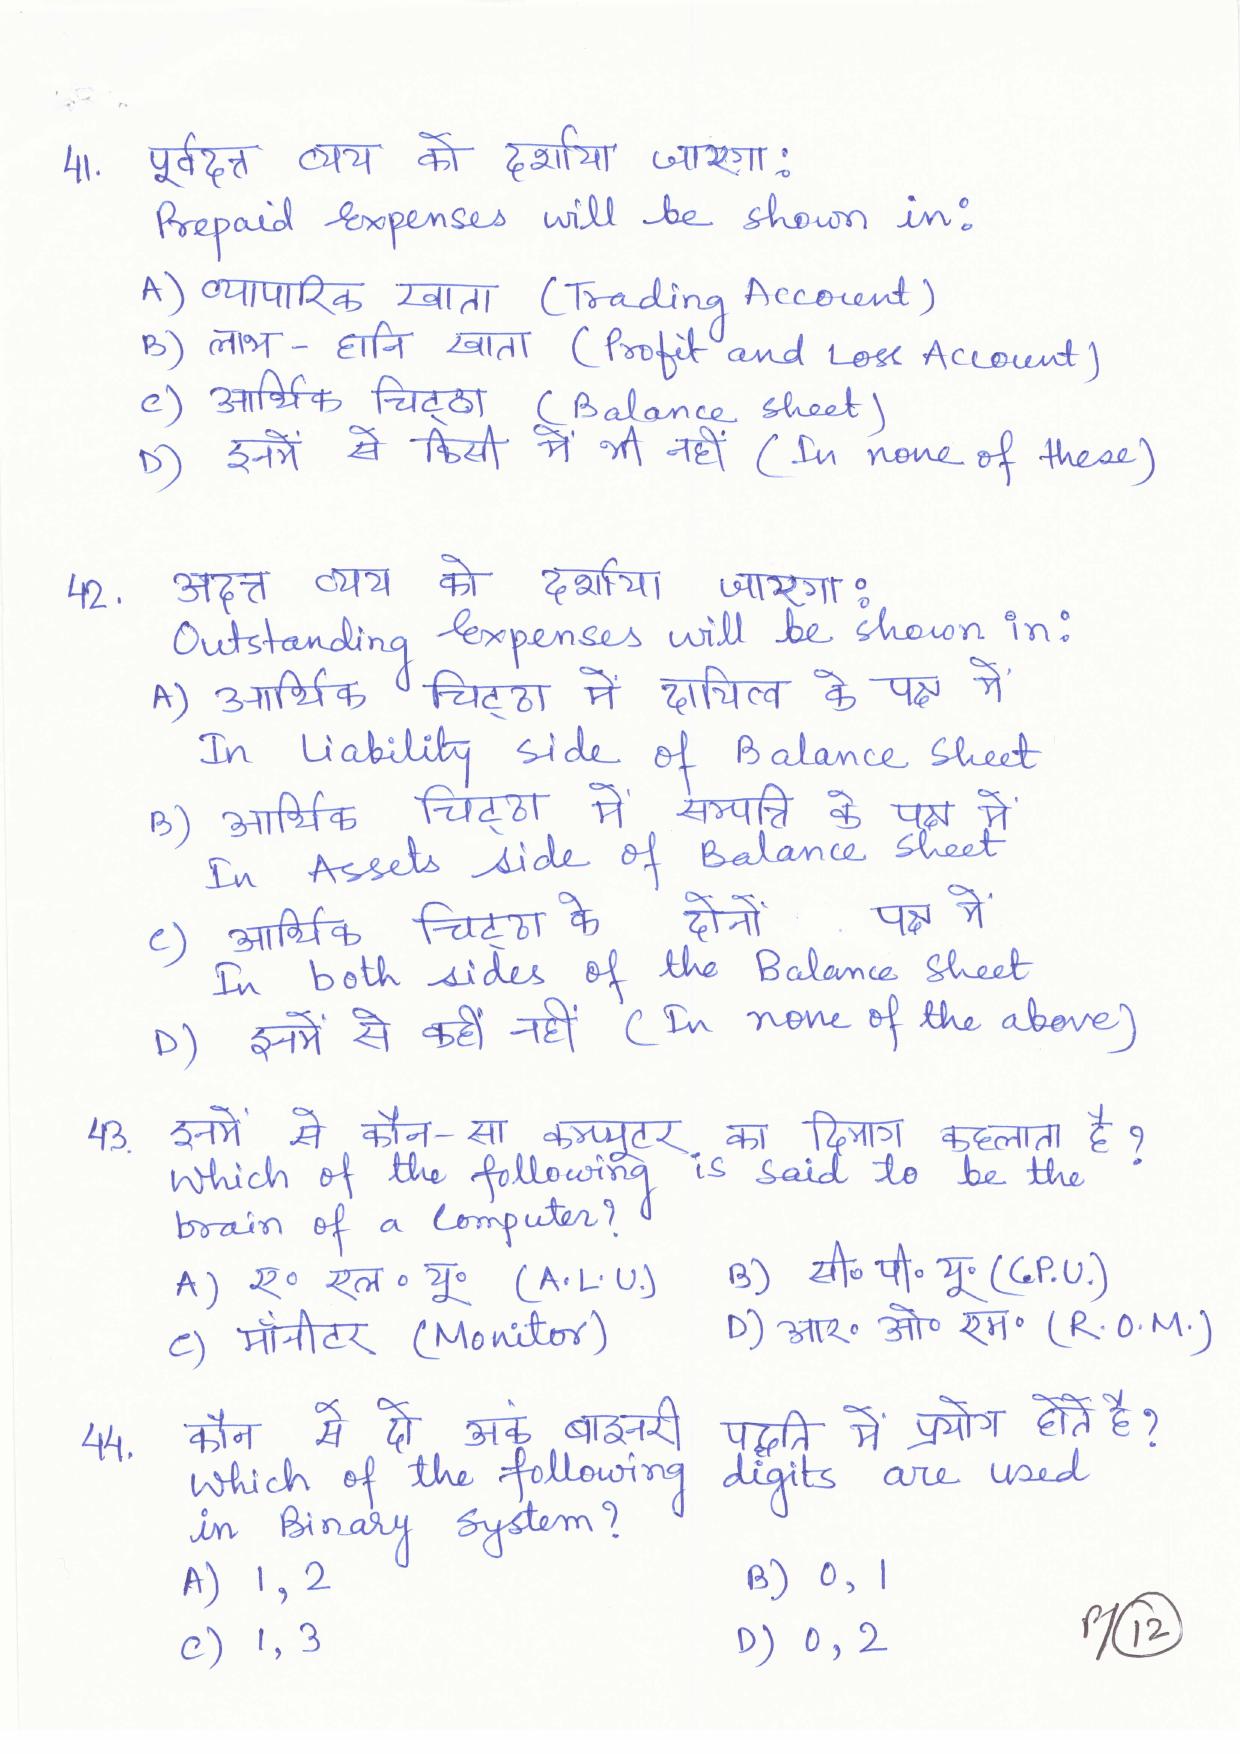 41. पूर्वदत्त व्यय को दर्शाया जाएगा:
Prepaid Expenses will be shown in:
A) व्यापारिक खाता (Trading Account)
B) लाभ - हानि खाता (Profit and Loss Account)
C) आर्थिक चिट्ठा (Balance Sheet)
D) इनमें से किसी में भी नहीं (In none of these)
42. अदत्त व्यय को दर्शाया जाएगा:
Outstanding Expenses will be shown in:
A) आर्थिक चिट्ठा में दायित्व के पक्ष में
In Liability side of Balance Sheet
B) आर्थिक चिट्ठा में सम्पत्ति के पक्ष में
In Assets side of Balance Sheet
C) आर्थिक चिट्ठा के दोनों पक्ष में
In both sides of the Balance Sheet
D) इनमें से कहीं नहीं (In none of the above)
43. इनमें से कौन-सा कम्प्यूटर का दिमाग कहलाता है?
Which of the following is said to be the
brain of a Computer?
A) ए० एल० यू० (A.L.U.) B) सी० पी० यू० (C.P.U.)
C) मॉनीटर (Monitor) D) आर० ओ० एम० (R.O.M.)
44. कौन से दो अकं बाइनरी पद्धति में प्रयोग होते है?
Which of the following digits are used
in Binary System?
A) 1, 2 B) 0, 1
C) 1, 3 D) 0, 2
P/12